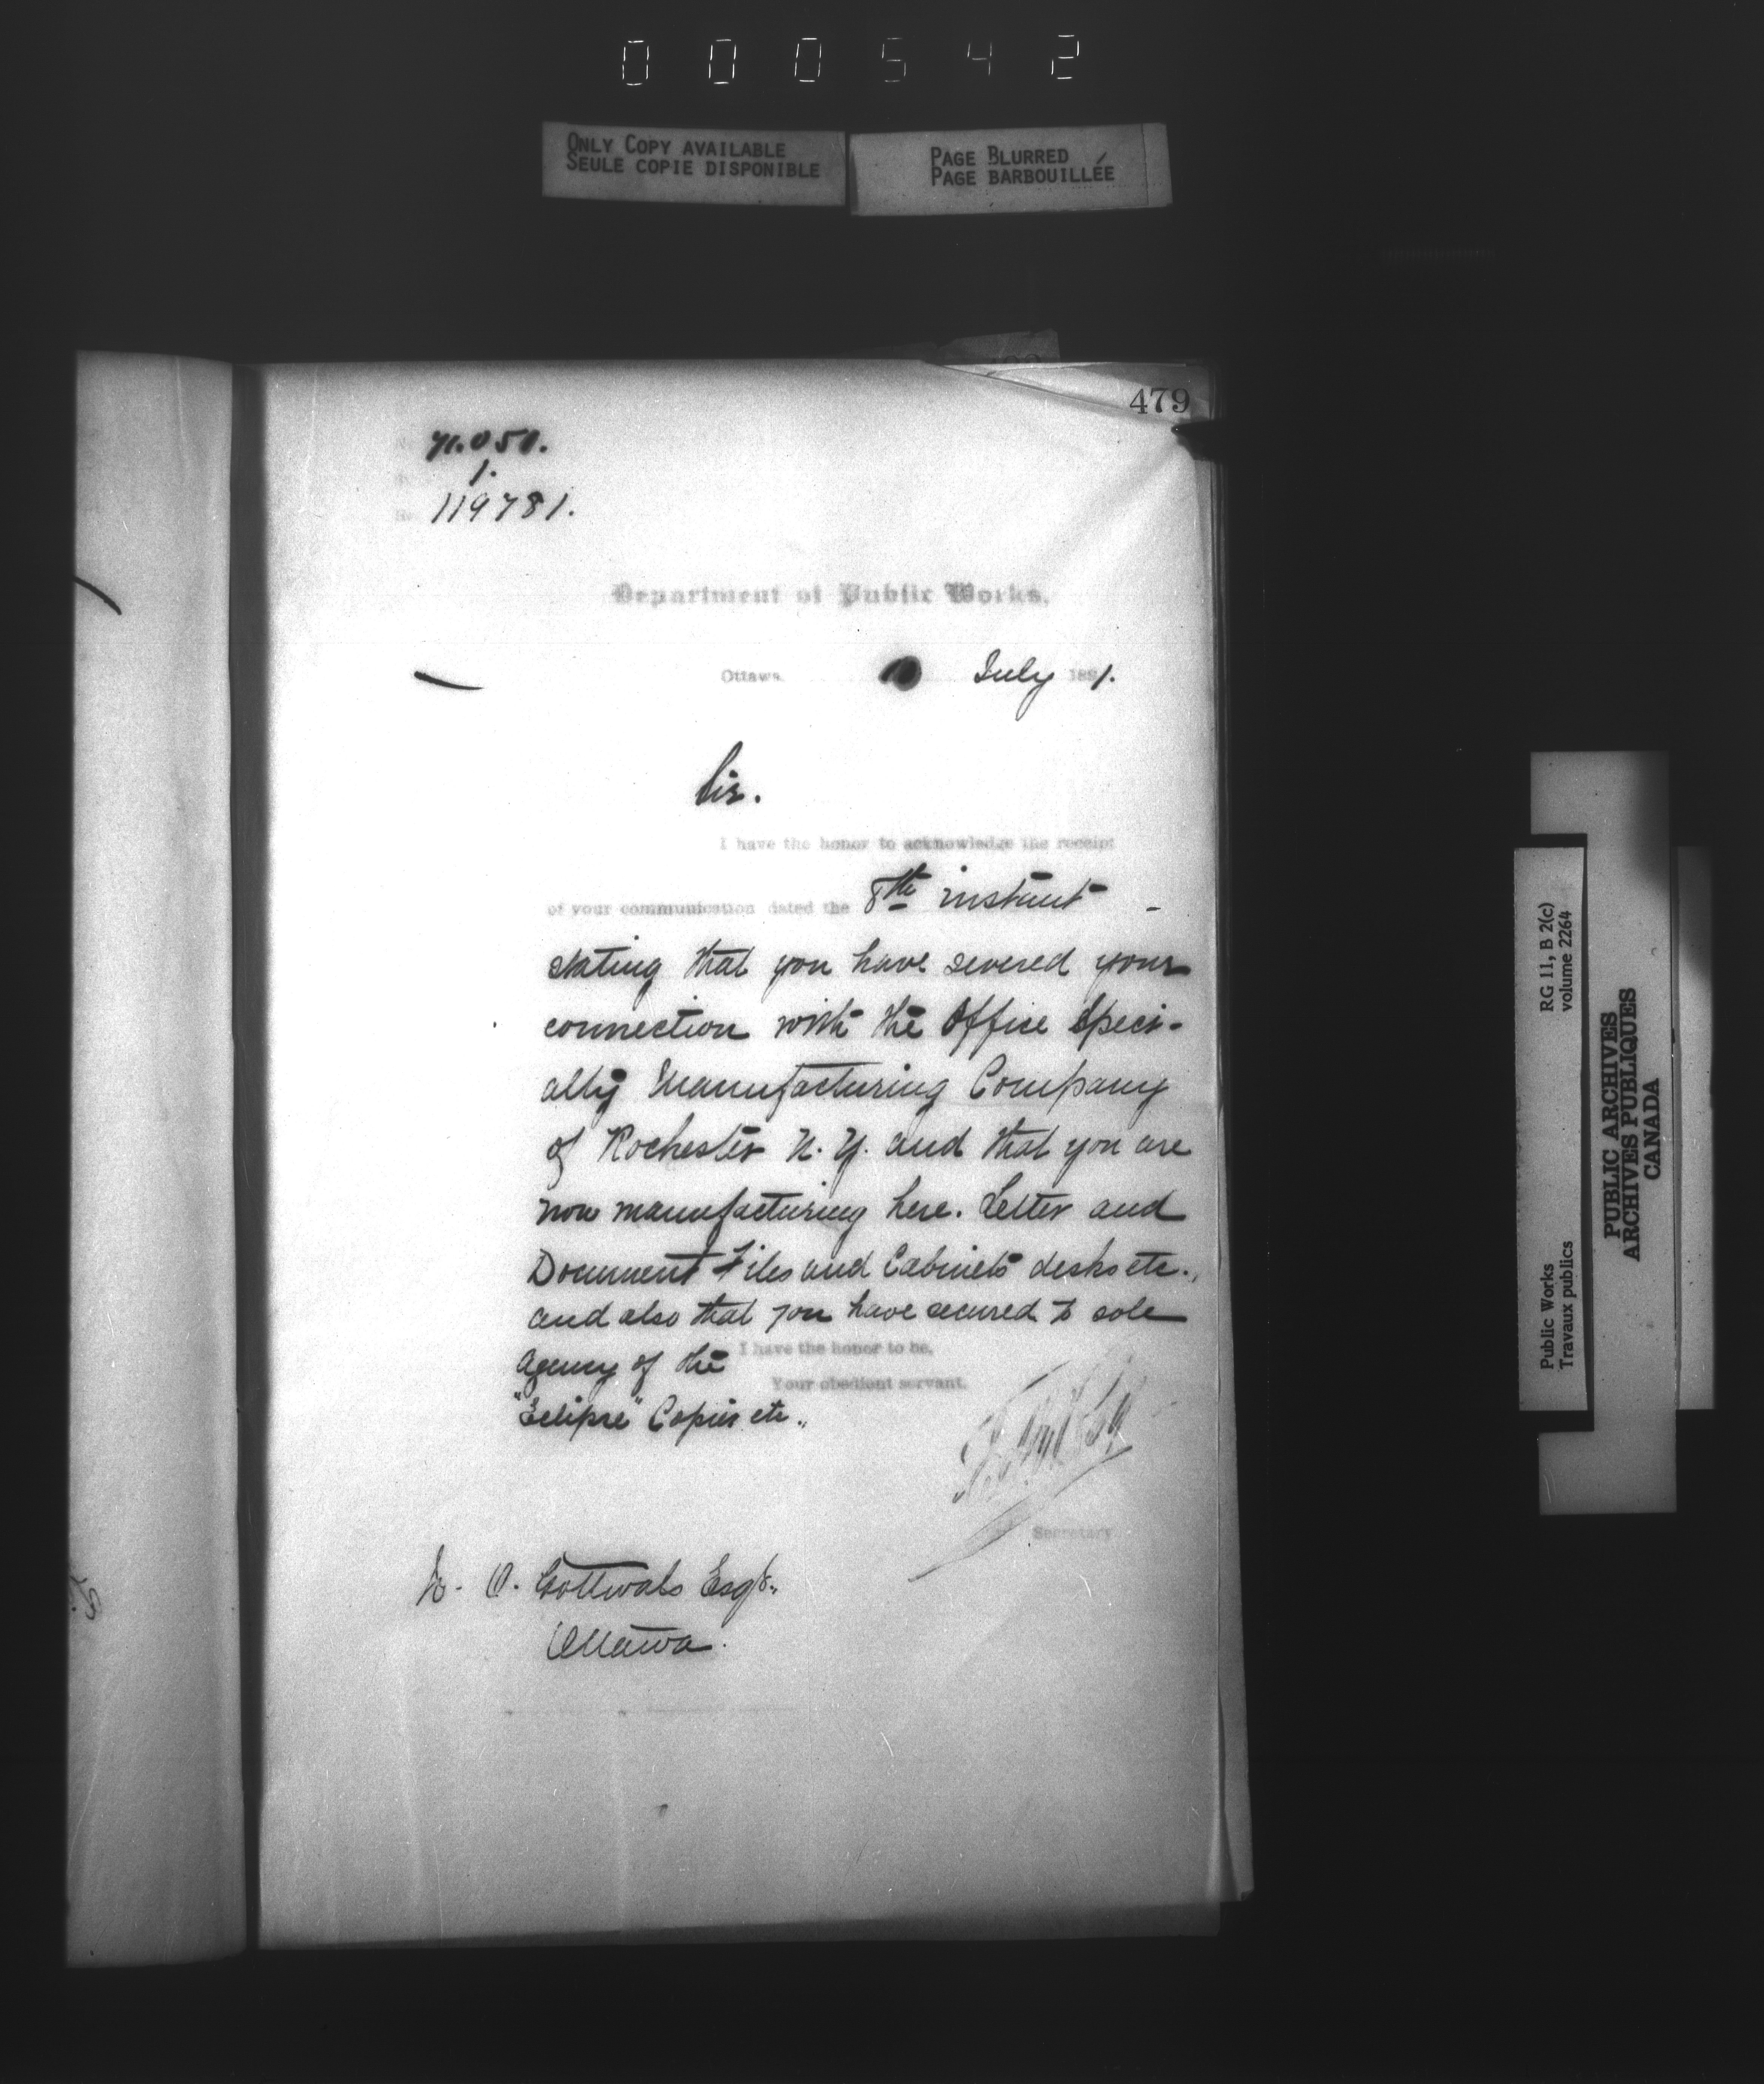 000542
ONLY COPY AVAILABLE
SEULE COPIE DISPONIBLE
PAGE BLURRED
PAGE BARBOUILLÉE
479
1.
119781.
Department of Public Works,
Ottawa July 1891.
Sir.
I have the honor to acknowledge the receipt
of your communication dated the 8th instant
stating that you have severed your
connection with the Office Speci-
alty Manufacturing Company
of Rochester N. Y. and that you are
now manufacturing here. Letter and
Document Files and Cabinets desks etc.,
and also that you have secured to sole
agency of the
I have the honor to be,
Your obedient servant,
"Eclipse" Copier etc.,
Secretary
O. Gottwals Esqr.,
Ottawa.
Public Works
Travaux publics
RG 11, B 2(c)
volume 2264
PUBLIC ARCHIVES
ARCHIVES PUBLIQUES
CANADA